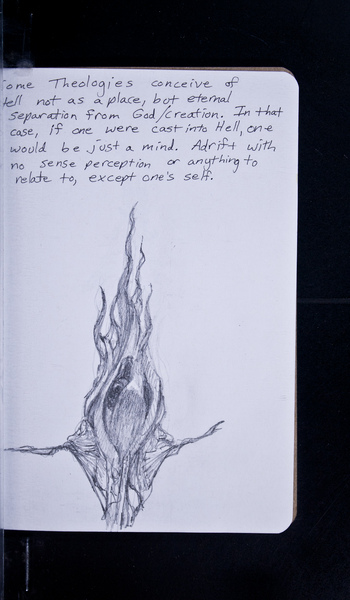 ome Theologies conceive of
ell not as a place, but eternal
separation from God/creation. In that
case, if one were cast into Hell, one
would be just a mind. Adrift with
no sense perception or anything to
relate to, except one's self.